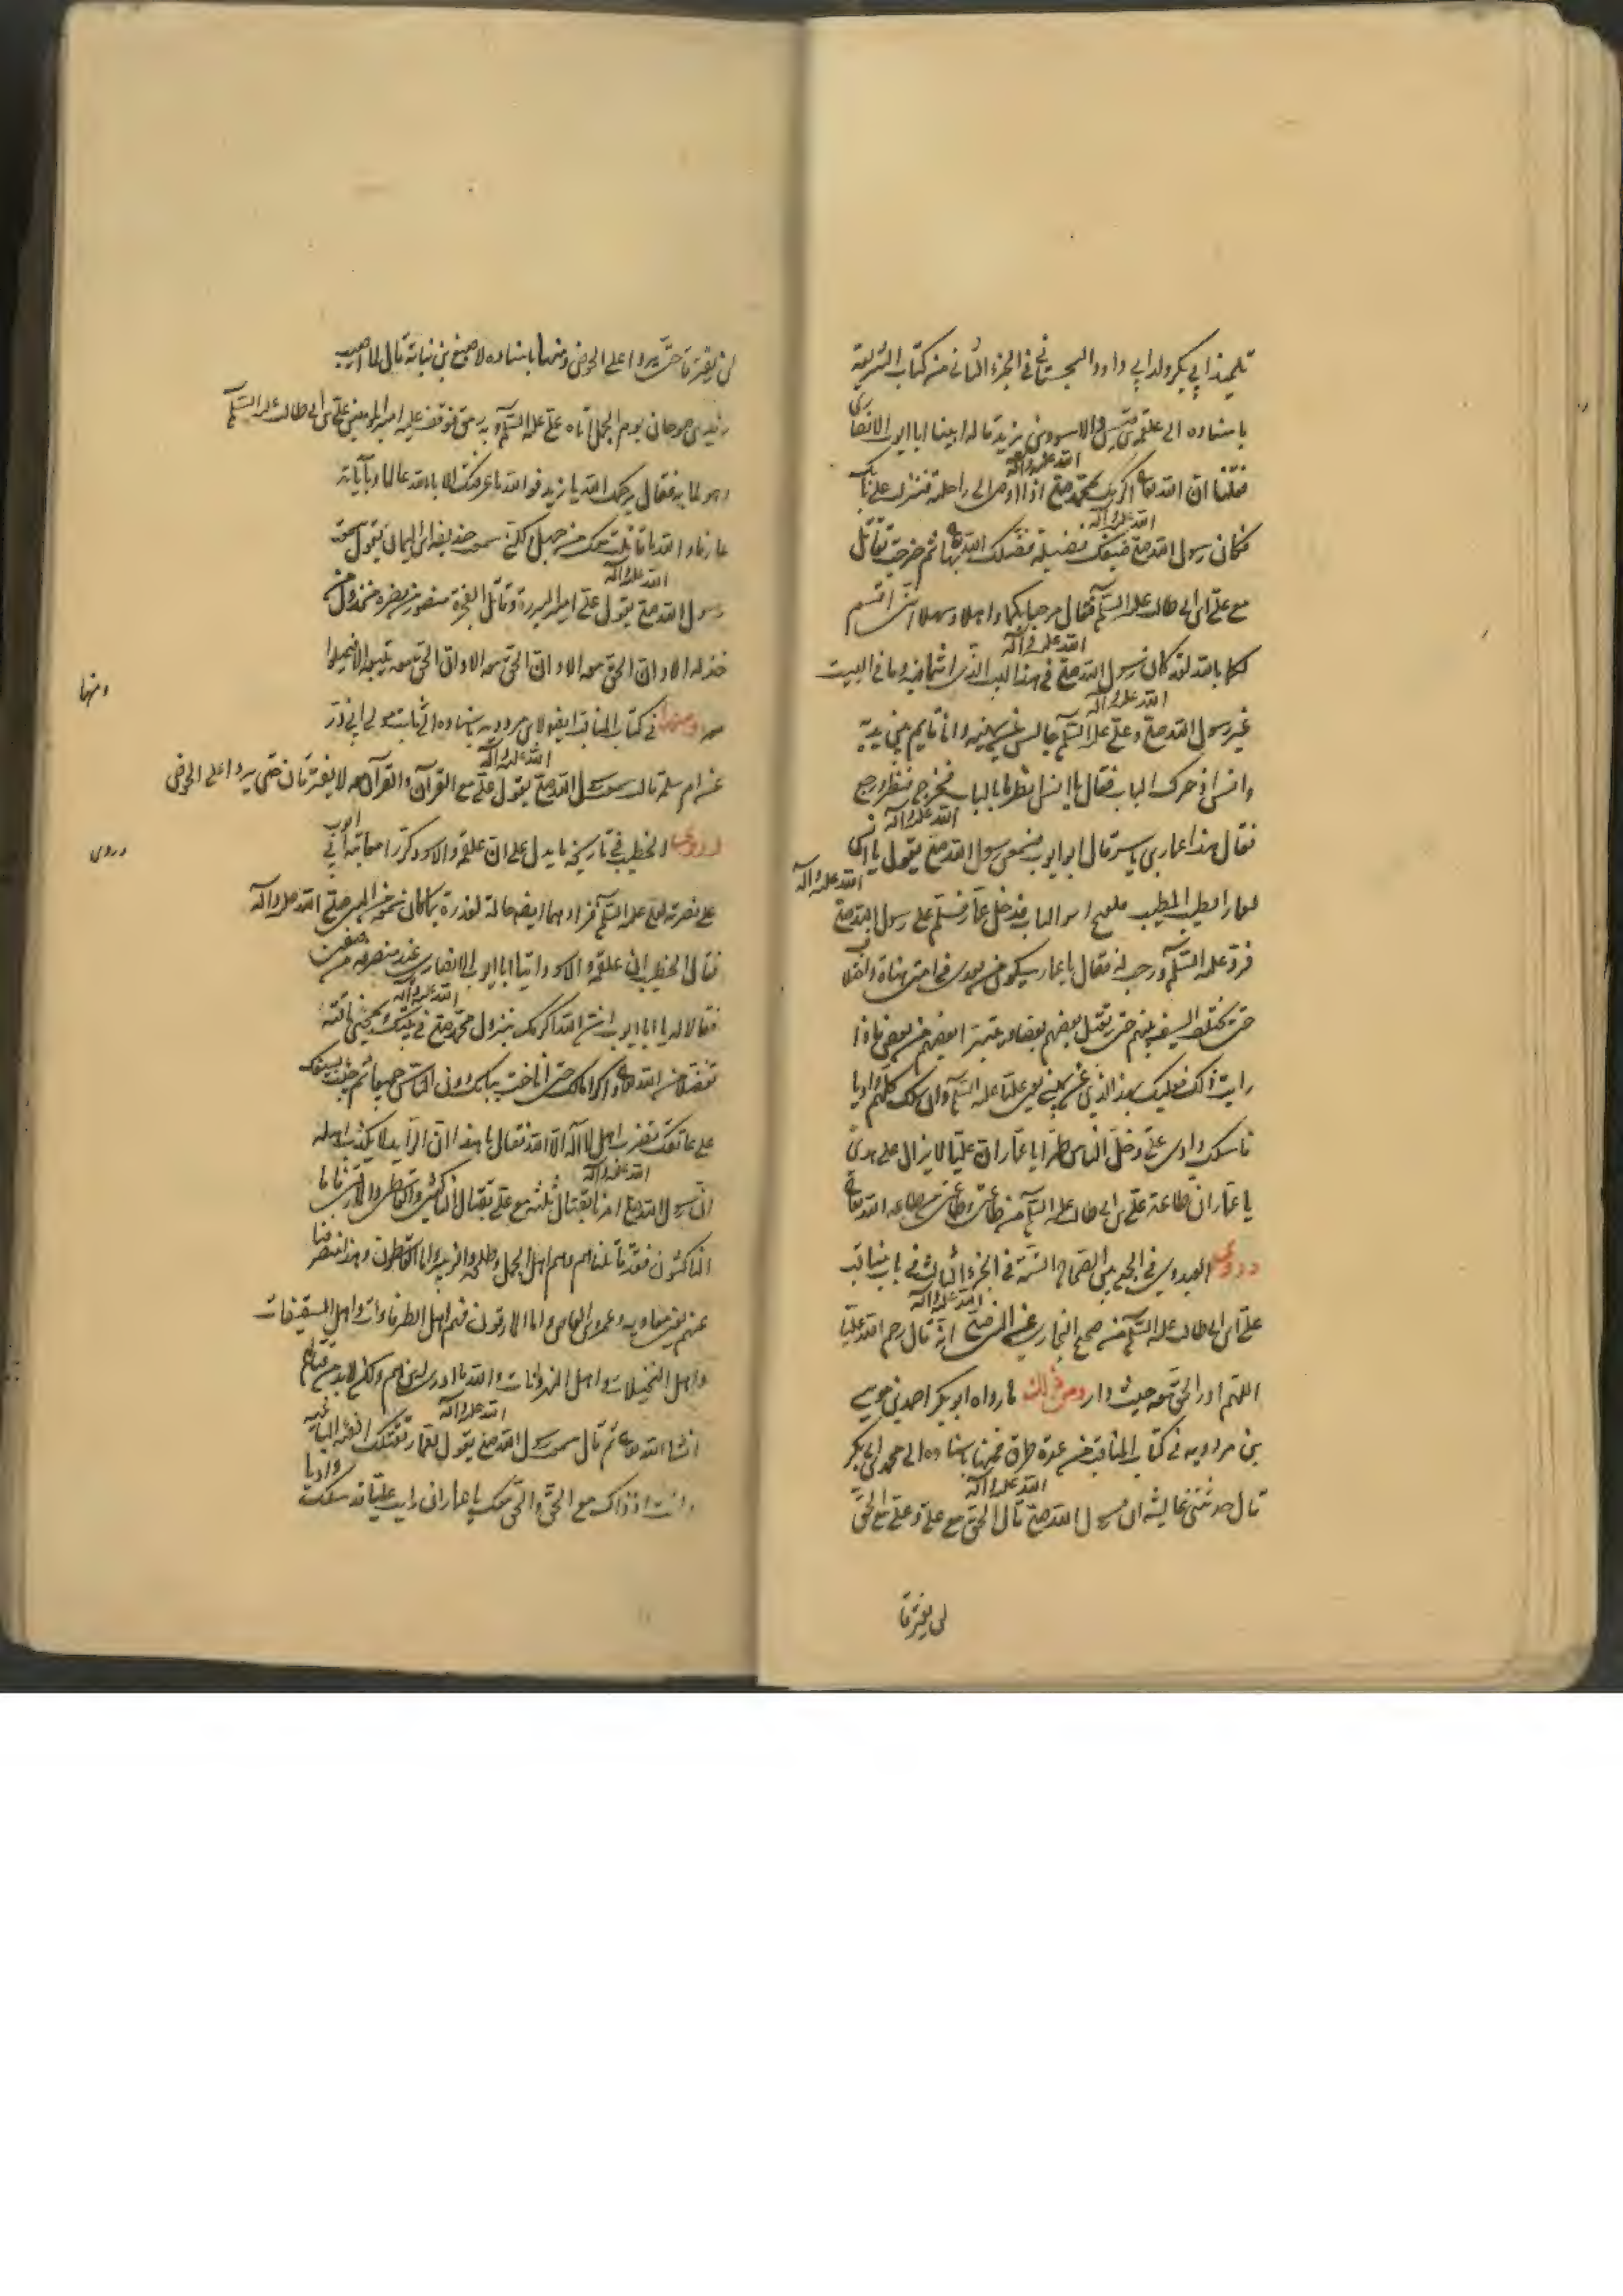 تلميذ ابي بكر ولد ابي داود السجستاني في الجزء الثاني من كتاب الشريعة
باسناده الى علقمة بن قيس والاسود بن يزيد قالا اتينا ابا ايوب الانصاري
فقلنا ان الله تعالى اكرمك بمحمد صلى الله عليه وآله اذ اوحى الى راحلته فنزلت على بابك
فكان رسول الله صلى الله عليه وآله ضيفك فضيلة فضلك الله بها ثم خرجت تقاتل
مع علي ابن ابي طالب عليه السلام فقال مرحبا بكما واهلا وسهلا انني اقسم
لكما بالله لقد كان رسول الله صلى الله عليه وآله في هذا البيت الذي انتما فيه وما في البيت
غير رسول الله صلى الله عليه وآله وعلي عليه السلام جالس عن يمينه وانا قايم بين يديه
وانس اذ حرك الباب فقال يا انس انظر من بالباب فخرج فنظر ورجع
فقال هذا عمار بن ياسر قال ابو ايوب فسمعت رسول الله صلى الله عليه وآله يقول يا انس
لعمار الطيب المطيب ففتح انس الباب فدخل عمار فسلم على رسول الله صلى الله عليه وآله
فرد عليه السلام ورحب به فقال يا عمار سيكون من بعدي في امتي هناة واختلاف
حتى يختلف السيف بينهم حتى يقتل بعضهم بعضا ويتبرء بعضهم من بعض فاذا
رايت ذلك فعليك بهذا الذي عن يميني يعني عليا عليه السلام وان سلك كلهم واديا
فاسلك وادي علي وخل الناس طرا يا عمار ان عليا لا يزال على هدى
يا عمار ان طاعة علي بن ابي طالب عليه السلام من طاعتي وطاعتي من طاعة الله تعالى
وروى العبدري في الجمع بين الصحاح الستة في الجزء الثالث في باب مناقب
علي ابن ابي طالب عليه السلام من صحيح البخاري عن النبي صلى الله عليه وآله انه قال رحم الله عليا
اللهم ادر الحق معه حيث دار ومن ذلك ما رواه ابو بكر احمد بن موسى
بن مردويه في كتاب المناقب من عدة طرق فمنها باسناده الى محمد بن ابي بكر
قال حدثتني عايشة ان رسول الله صلى الله عليه وآله قال الحق مع علي وعلي مع الحق
لن يفترقا
لن يفترقا حتى يردا على الحوض ومنها باسناده لاصبغ بن نباتة قال لما اصيب
زيد بن صوحان يوم الجمل اتاه علي عليه السلام وبه رمق فوقف عليه امير المؤمنين علي بن ابي طالب عليه السلام
وهو لما به فقال رحمك الله يا زيد فوالله ما عرفتك الا بالله عالما وبآياته
عارفا والله ما قاتلت معك من جهل ولكني سمعت حذيفة ابن اليمان يقول سمعت
رسول الله صلى الله عليه وآله يقول علي امير البررة وقاتل الفجرة منصور من نصره مخذول من
خذله الا وان الحق معه الا وان الحق معه الا وان الحق معه يتبعه الا فميلوا
معه ومنها في كتاب المناقب ايضا لابن مردويه باسناده الى ثابت مولى ابي ذر
ومنها
عن ام سلمة قالت سمعت رسول الله صلى الله عليه وآله يقول علي مع القرآن والقرآن معه لا يفترقان حتى يردا على الحوض
وروى الخطيب في تاريخه ما يدل على ان علقمة والاسود كررا معاتبة ابي ايوب
وروى
على نصرته لعلي عليه السلام فزادهما ايضاحا لعذره مما كان سمع من النبي صلى الله عليه وآله
فقال الخطيب ان علقمة والاسود اتيا ابا ايوب الانصاري عند منصرفه من صفين
فقالا له يا ابا ايوب ان الله اكرمك بنزول محمد صلى الله عليه وآله في بيتك وبمجيء ناقته
تفضلا من الله تعالى واكراما لك حتى اناخت ببابك دون الناس جميعا ثم جئت بسيفك
على عاتقك تضرب اهل لا اله الا الله فقال يا هذا ان الرايد لا يكذب اهله
ان رسول الله صلى الله عليه وآله امرنا بقتال ثلثة مع علي بقتال الناكثين والقاسطين والمارقين فاما
الناكثون فقد قاتلناهم وهم اهل الجمل وطلحة والزبير واما القاسطون وهذا منصرفنا
عنهم يعني معاوية وعمرو بن العاص واما المارقون فهم اهل الطرفاوات واهل السقيفات
واهل النخيلات واهل النهروانات والله ما ادري اين هم ولكن لابد من قتالهم
انشا الله تعالى ثم قال سمعت رسول الله صلى الله عليه وآله يقول لعمار تقتلك الفئة الباغية
وانت اذ ذاك مع الحق والحق معك يا عمار ان رايت عليا قد سلك واديا